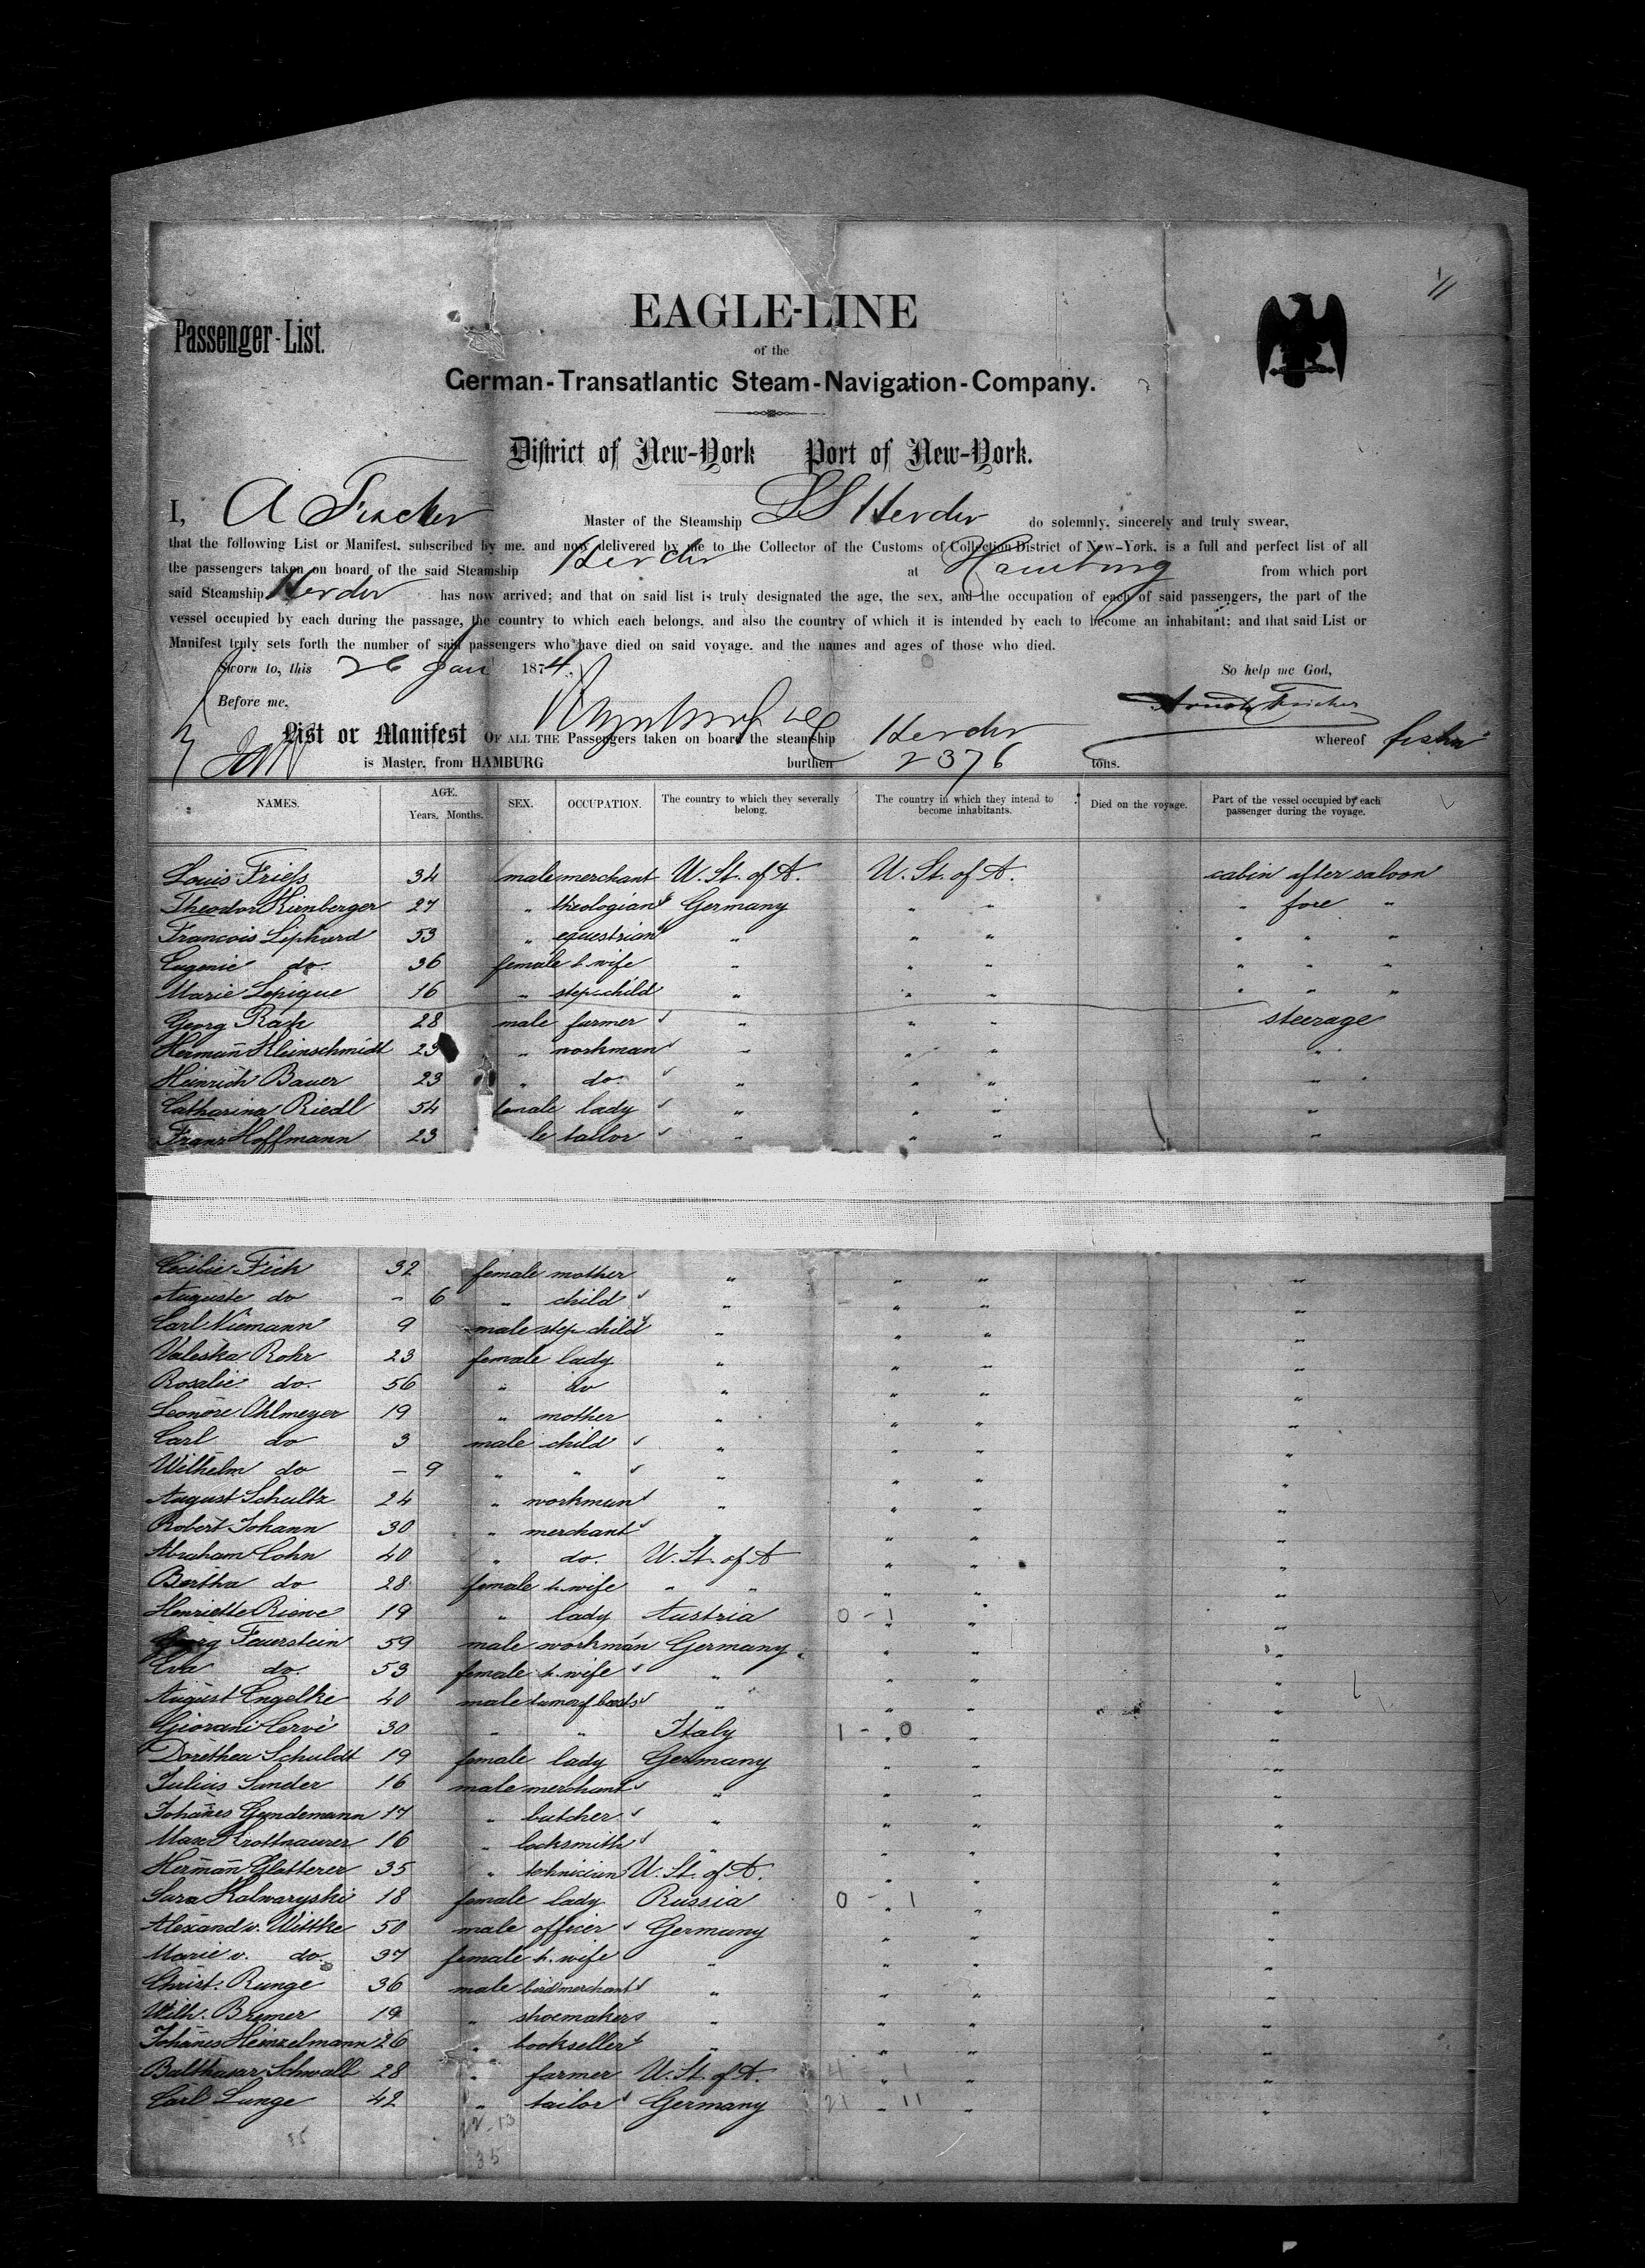 11
Passenger-List.
EAGLE-LINE
of the
German-Transatlantic Steam-Navigation-Company.
District of New-York Port of New-York.
I, A Fischer Master of the Steamship SS Herder do solemnly, sincerely and truly swear,
that the following List or Manifest, subscribed by me, and now delivered by me to the Collector of the Customs of Collection District of New-York, is a full and perfect list of all
the passengers taken on board of the said Steamship Herder at Hamburg from which port
said Steamship Herder has now arrived; and that on said list is truly designated the age, the sex, and the occupation of each of said passengers, the part of the
vessel occupied by each during the passage, the country to which each belongs, and also the country of which it is intended by each to become an inhabitant; and that said List or
Manifest truly sets forth the number of said passengers who have died on said voyage, and the names and ages of those who died.
Sworn to, this 26 Jan 1874. So help me God,
Before me,
List or Manifest OF ALL THE Passengers taken on board the steamship Herder whereof
is Master, from HAMBURG burthen 2376 tons.
NAMES. AGE. Years, Months. SEX. OCCUPATION. The country to which they severally belong. The country in which they intend to become inhabitants. Died on the voyage. Part of the vessel occupied by each passenger during the voyage.
Louis Friess 34 male merchant U. St. of A. U. St. of A. cabin after saloon
Theodor Kirnberger 27 " theologian Germany " " " fore "
Francois Liphard 53 " equestrian " " " " " "
Eugenie do. 36 female h. wife " " " " " "
Marie Lepique 16 " step-child " " " " " "
Georg Rak 28 male farmer " " " steerage
Herman̄ Kleinschmidt 23 " workman " " " "
Heinrich Bauer 23 " do. " " " "
Catharina Riedl 54 female lady " " " "
Franz Hoffmann 23 le tailor " " " "
Cecilie Fich 32 female mother " " " "
Auguste do - 6 " child " " " "
Carl Niemann 9 male step-child " " " "
Valeska Rohr 23 female lady " " " "
Rosalie do. 56 " do " " " "
Leonore Ohlmeyer 19 " mother " " " "
Carl do 3 male child " " " "
Wilhelm do - 9 " " " " " "
August Schultz 24 " workman " " " "
Robert Johann 30 " merchant " " " "
Abraham Cohn 40 " do. U. St. of A " " "
Bertha do 28 female h. wife " " " " "
Henriette Riewe 19 " lady Austria 0 - 1 " " "
Georg Feuerstein 59 male workman Germany " " "
Eva do. 53 female h. wife " " " "
August Engelke 40 male tamer of beasts " " " "
Giovani Cervi 30 " " Italy 1 - 0 " " "
Dorethea Schuldt 19 female lady Germany " " "
Julius Sander 16 male merchant " " " "
Johan̄es Gyndemann 17 " butcher " " " "
Max Krottnaurer 16 " locksmith " " " "
Herman̄ Glatterer 35 " technician U. St. of A. " " "
Sara Kalwaryski 18 female lady Russia 0 - 1 " " "
Alexand v. Wittke 50 male officer Germany " " "
Marie v. do. 37 female h. wife " " " "
Christ. Runge 36 male bird merchant " " " "
Wilh. Bremer 19 " shoemaker " " " "
Johan̄es Heinzelmann 26 " bookseller " " " "
Balthasar Schwalb 28 " farmer U. St. of A. 4 - 1 " " "
Carl Lange 42 " tailor Germany 21 - 11 " "
22-13
35 35